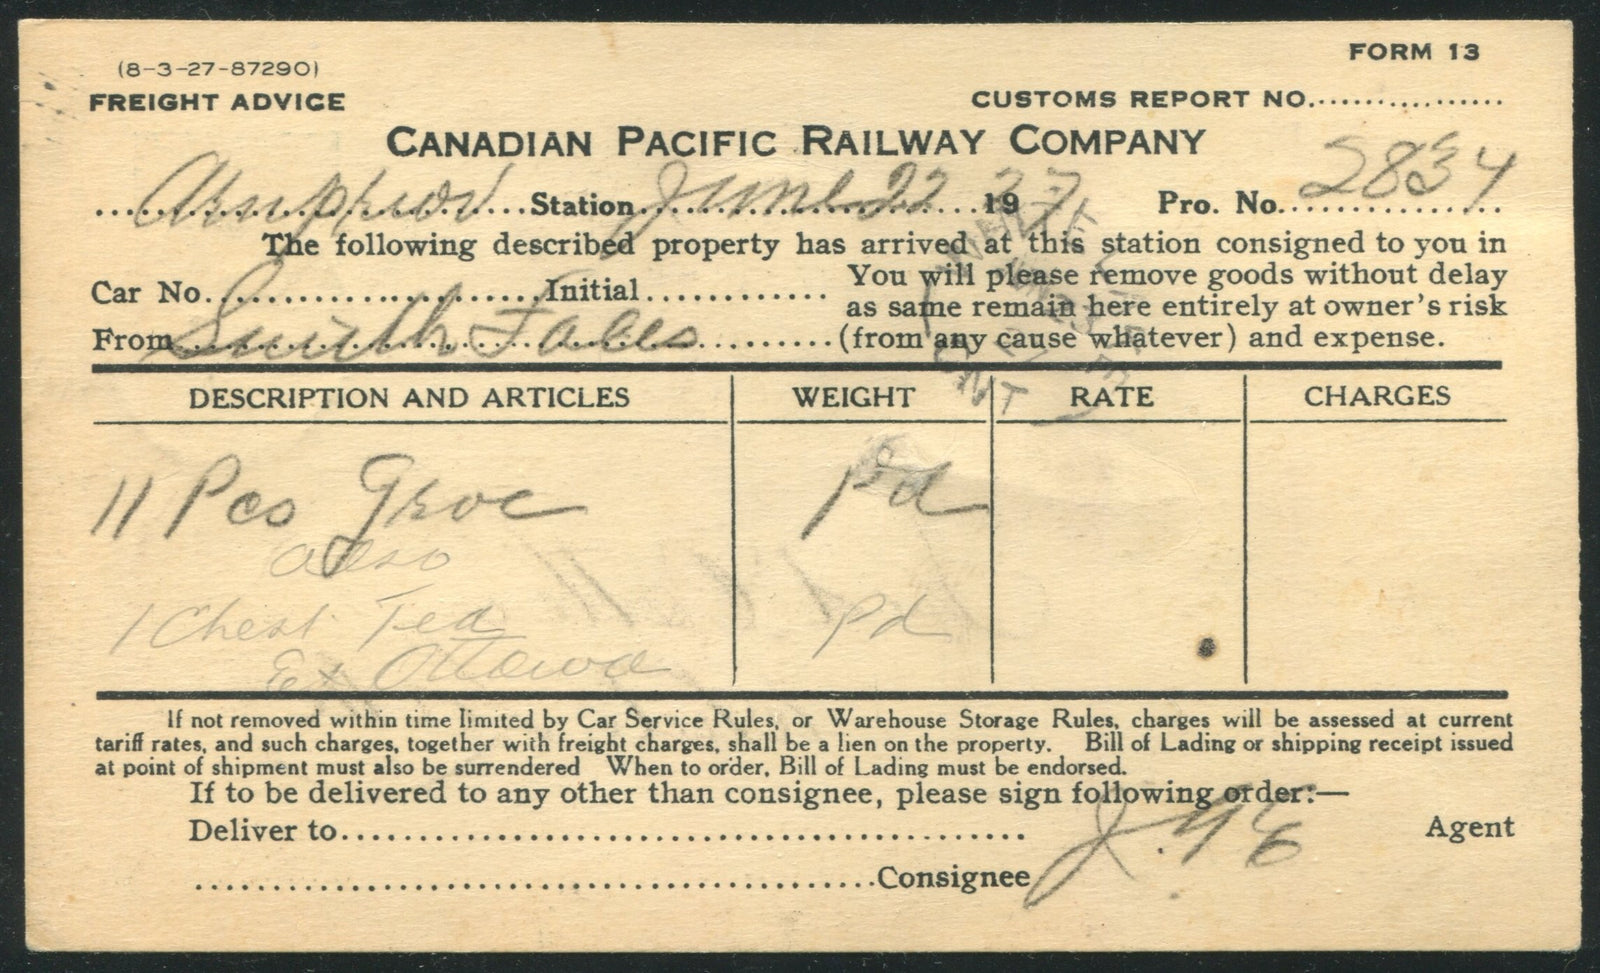 FORM 13
(8-3-27-87290)
FREIGHT ADVICE
CUSTOMS REPORT NO....................
CANADIAN PACIFIC RAILWAY COMPANY
Arnprior Station June 22 1927 Pro. No. 2834
The following described property has arrived at this station consigned to you in
Car No. Initial You will please remove goods without delay
as same remain here entirely at owner's risk
From Smith Falls (from any cause whatever) and expense.
DESCRIPTION AND ARTICLES WEIGHT RATE CHARGES
11 Pcs Groc Pd
also
1 Chest Tea Pd
Ex Ottawa
If not removed within time limited by Car Service Rules, or Warehouse Storage Rules, charges will be assessed at current
tariff rates, and such charges, together with freight charges, shall be a lien on the property. Bill of Lading or shipping receipt issued
at point of shipment must also be surrendered When to order, Bill of Lading must be endorsed.
If to be delivered to any other than consignee, please sign following order:—
Deliver to........................................ Agent
........................................Consignee